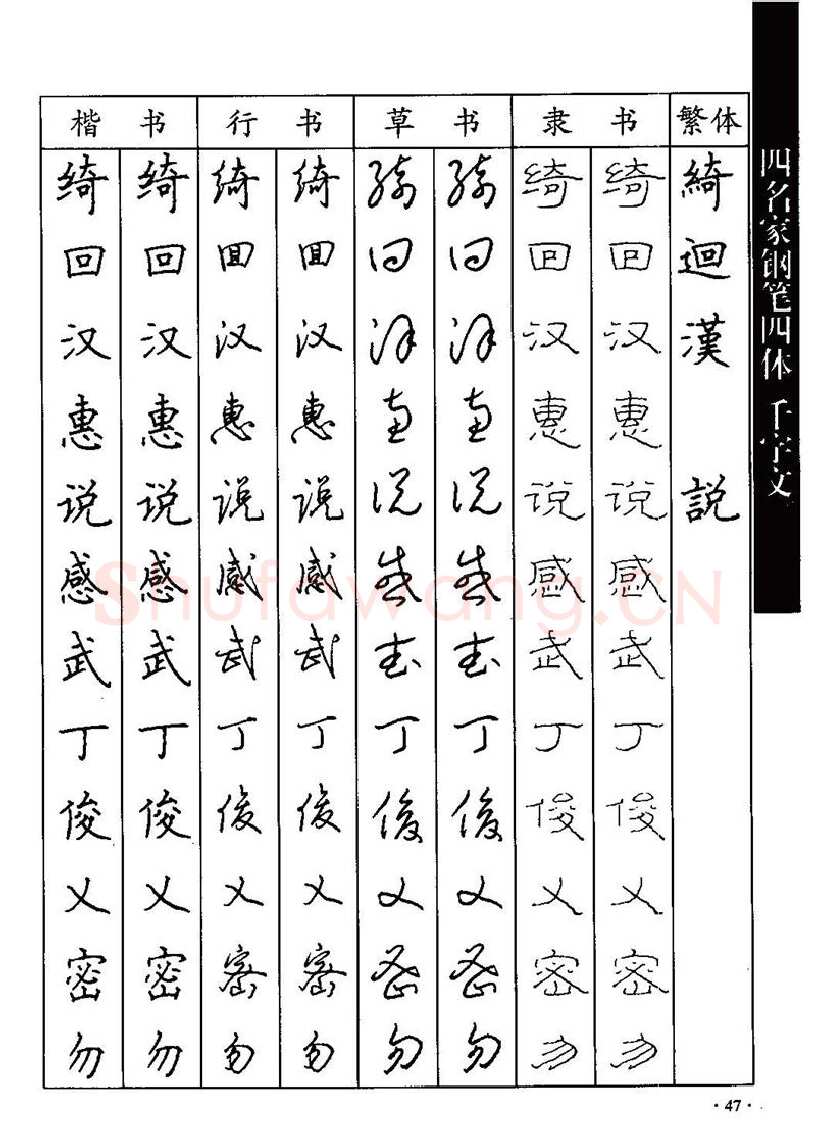 楷 书 行 书 草 书 隶 书 繁体
绮 绮 绮 绮 绮 绮 绮 绮 綺
回 回 回 回 回 回 回 回 迴
汉 汉 汉 汉 汉 汉 汉 汉 漢
惠 惠 惠 惠 惠 惠 惠 惠
说 说 说 说 说 说 说 说 説
感 感 感 感 感 感 感 感
武 武 武 武 武 武 武 武
丁 丁 丁 丁 丁 丁 丁 丁
俊 俊 俊 俊 俊 俊 俊 俊
乂 乂 乂 乂 乂 乂 乂 乂
密 密 密 密 密 密 密 密
勿 勿 勿 勿 勿 勿 勿 勿
四名家钢笔四体 千字文
Shufawang.CN
·47·